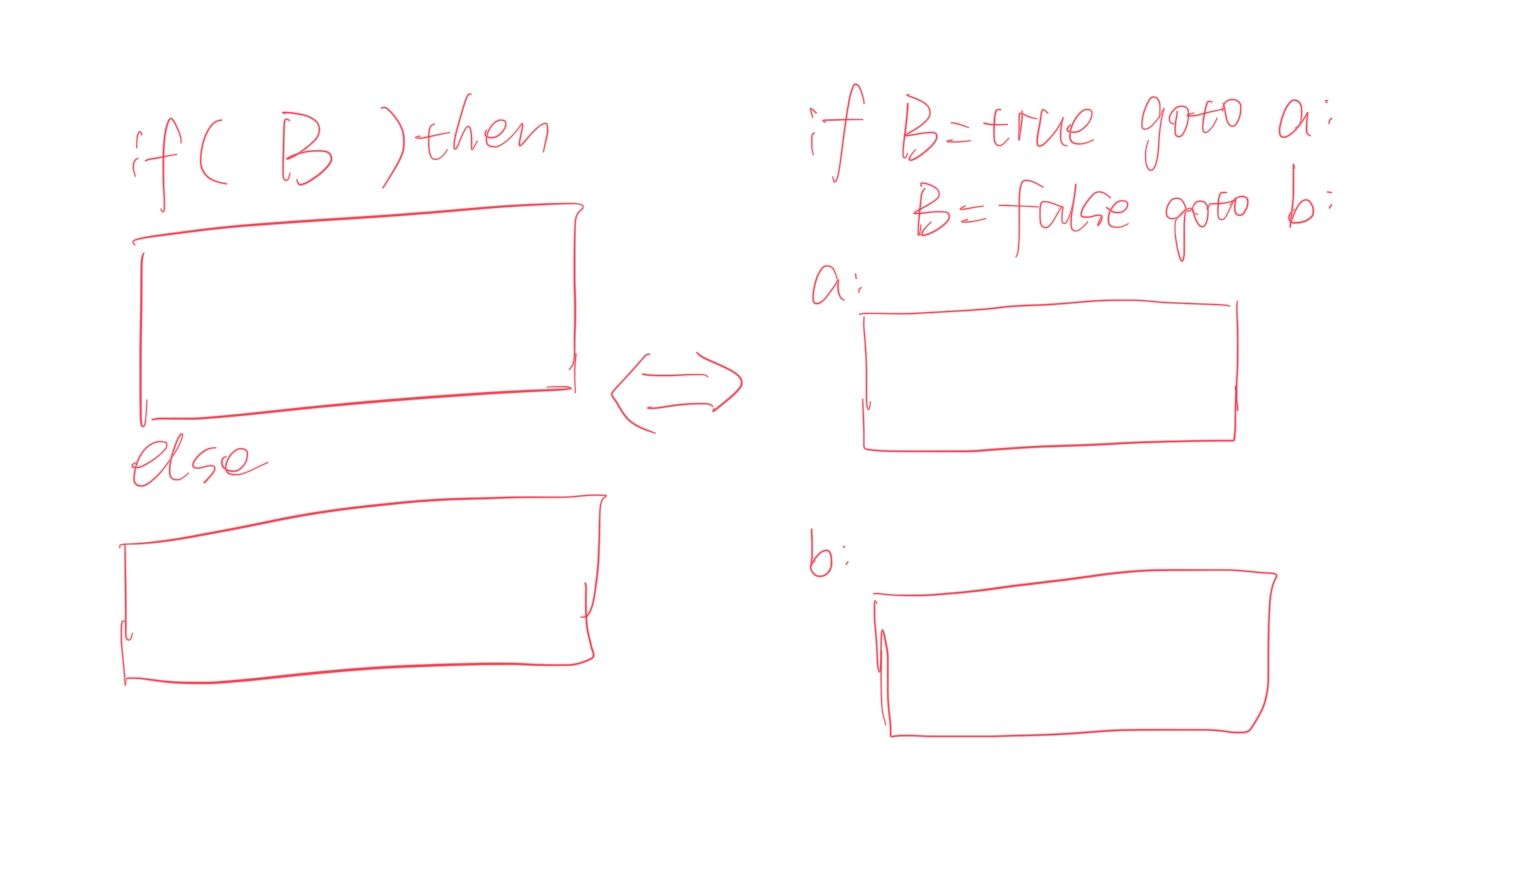 if( B )then
else
if B=true goto a:
B=false goto b:
a:
b: